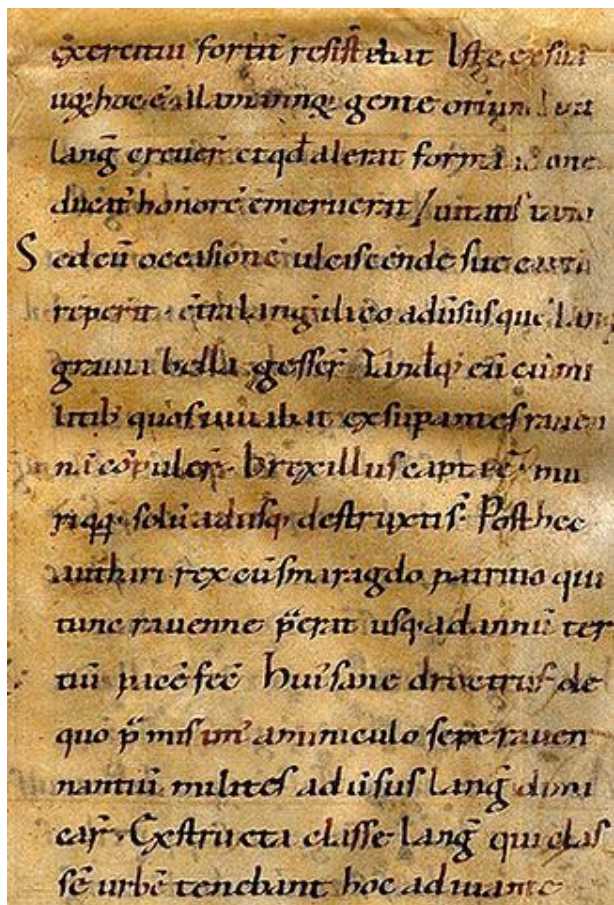 exercitui fortit̄ resistebat Iste ex sua
uoꝝ hoc ē alamannoꝝ gente oriundus
lang̅ creuer̄ et qd̄ alerat forma idone
ducat᷒ honorē emeruerat
Sed cū occasionē ulciscende sue
reperit cōtra lang̅ ilico aduīsus que lang̅
grauia bella gesser̄ Tandē eū cū mi
litib; quos iuuabat exsupantes rauen
nā cōpuler̄. brexillus capt᷒ ē mu
riqꝫ solū adusqꝫ destructi s̄. Post hec
authari rex cū smaragdo patritio qui
tunc rauenne p̄erat usqꝫ ad annū ter
tiū pacē fec̄ hui᷒ sane droctrufs de
quo p̄misim᷒ aminiculo sepe rauen
nantiū milites aduīsus lang̅ dimi
car̄. Exstructa classe lang̅ qui clas
sē urbē tenebant hoc adiuuante